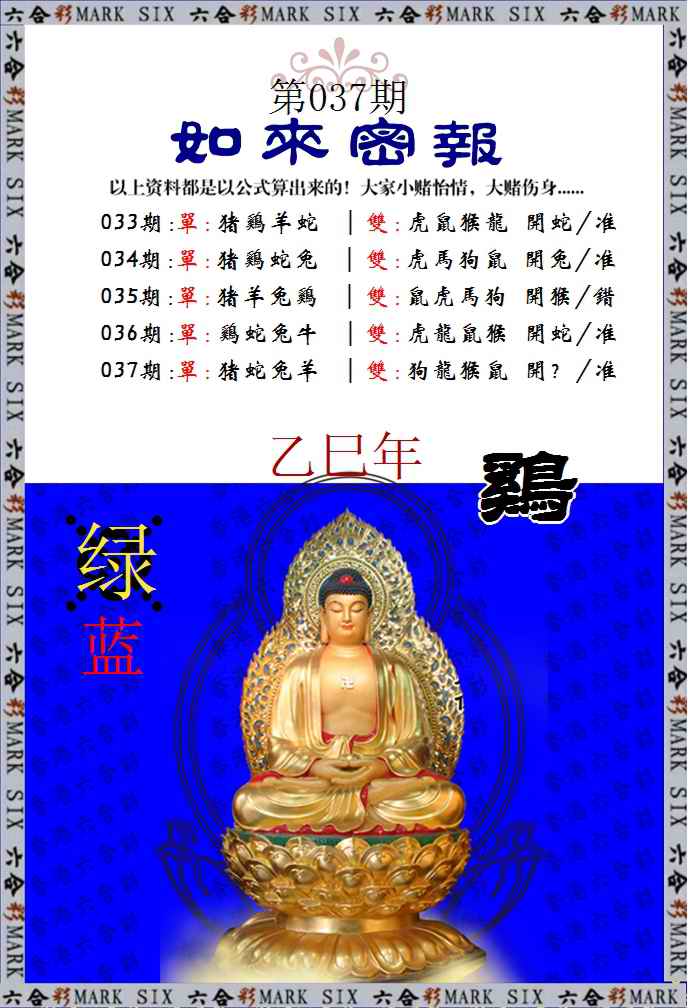 六合彩MARK SIX 六合彩MARK SIX 六合彩MARK SIX 六合彩MARK SIX
第037期
如來密報
以上资料都是以公式算出来的！大家小赌怡情，大赌伤身......
033期:單:猪鷄羊蛇 | 雙:虎鼠猴龍 開蛇/准
034期:單:猪鷄蛇兔 | 雙:虎馬狗鼠 開兔/准
035期:單:猪羊兔鷄 | 雙:鼠虎馬狗 開猴/錯
036期:單:鷄蛇兔牛 | 雙:虎龍鼠猴 開蛇/准
037期:單:猪蛇兔羊 | 雙:狗龍猴鼠 開? /准
乙巳年
鷄
绿
蓝
六合彩MARK SIX 六合彩MARK SIX 六合彩MARK SIX 六合彩MARK SIX